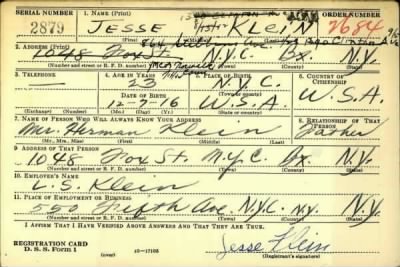 SERIAL NUMBER 1. NAME (Print) ORDER NUMBER
2879 JESSE KLEIN 2684
(First) (Middle) (Last)
2. ADDRESS (Print)
1048 Fox St. N.Y.C. Bx. N.Y.
(Number and street or R. F. D. number) (Town) (County) (State)
3. TELEPHONE 4. AGE IN YEARS 5. PLACE OF BIRTH 6. COUNTRY OF CITIZENSHIP
— 23 N.Y.C.
DATE OF BIRTH (Town or county)
12-7-16 U.S.A. U.S.A.
(Exchange) (Number) (Mo.) (Day) (Yr.) (State or country)
7. NAME OF PERSON WHO WILL ALWAYS KNOW YOUR ADDRESS 8. RELATIONSHIP OF THAT PERSON
Mr. Herman Klein Father
(Mr., Mrs., Miss) (First) (Middle) (Last)
9. ADDRESS OF THAT PERSON
1048 Fox St. N.Y.C. Bx. N.Y.
(Number and street or R. F. D. number) (Town) (County) (State)
10. EMPLOYER'S NAME
L. S. Klein
11. PLACE OF EMPLOYMENT OR BUSINESS
550 Fifth Ave. N.Y.C. N.Y. N.Y.
(Number and street or R. F. D. number) (Town) (County) (State)
I AFFIRM THAT I HAVE VERIFIED ABOVE ANSWERS AND THAT THEY ARE TRUE.
REGISTRATION CARD
D. S. S. Form 1 Jesse Klein
(Registrant's signature)